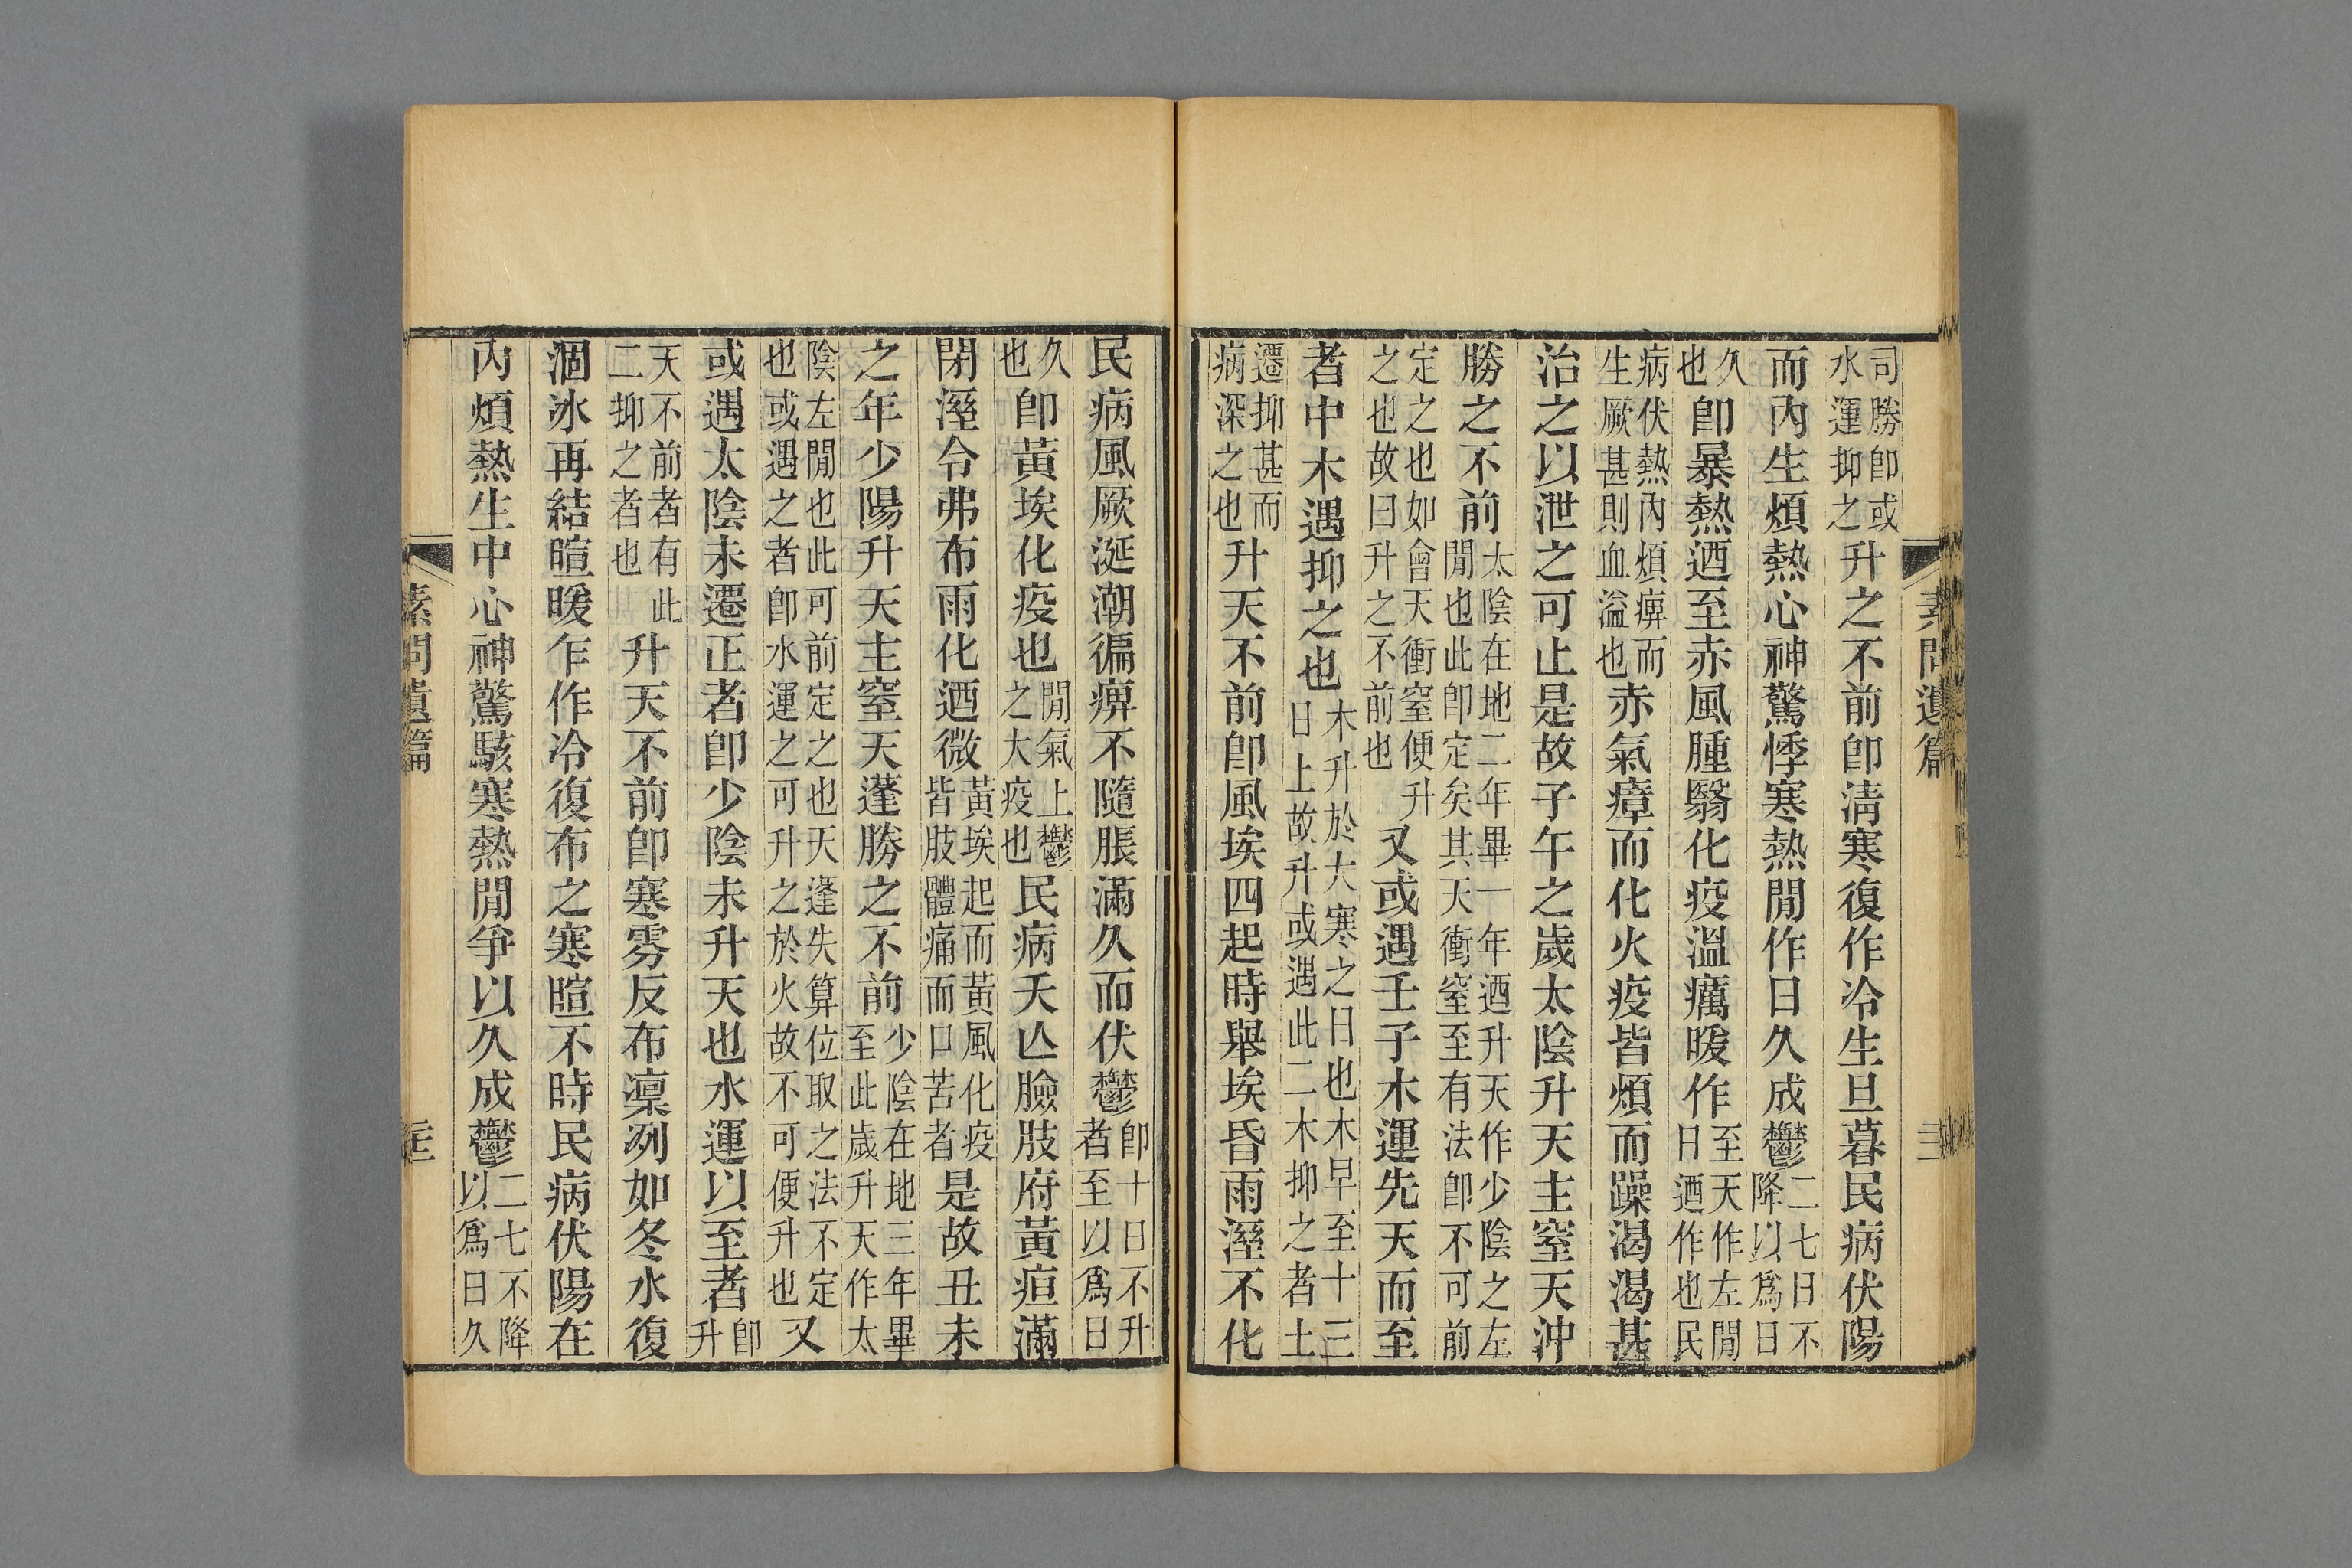 素問遺篇
司勝卽或水運抑之升之不前卽淸寒復作冷生旦暮民病伏陽
而內生煩熱心神驚悸寒熱閒作日久成鬱二七日不降以爲日
久也卽暴熱迺至赤風腫翳化疫溫癘暖作至天作左閒日迺作也民
病伏熱內煩痹而生厥甚則血溢也赤氣瘴而化火疫皆煩而躁渴渴甚
治之以泄之可止是故子午之歲太陰升天主窒天沖
勝之不前太陰在地二年畢一年迺升天作少陰之左閒也此卽定矣其天衝窒至有法卽不可前
定之也如會天衝窒便升之也故曰升之不前也又或遇壬子木運先天而至
者中木遇抑之也木升於大寒之日也木早至十三日上故升或遇此二木抑之者土
遷抑甚而病深之也升天不前卽風埃四起時舉埃昏雨溼不化
民病風厥涎潮徧痹不隨脹滿久而伏鬱卽十日不升者至以爲日
久也卽黃埃化疫也閒氣上鬱之大疫也民病夭亾臉肢府黃疸滿
閉溼令弗布雨化迺微黃埃起而黃風化疫皆肢體痛而口苦者是故丑未
之年少陽升天主窒天蓬勝之不前少陰在地三年畢至此歲升天作太
陰左閒也此可前定之也天逢失算位取之法不定也或遇之者卽水運之可升之於火故不可便升也又
或遇太陰未遷正者卽少陰未升天也水運以至者卽升
天不前者有此二抑之者也升天不前卽寒雰反布凜冽如冬水復
涸冰再結暄暖乍作冷復布之寒暄不時民病伏陽在
內煩熱生中心神驚駭寒熱閒爭以久成鬱二七不降以爲日久
素問遺篇